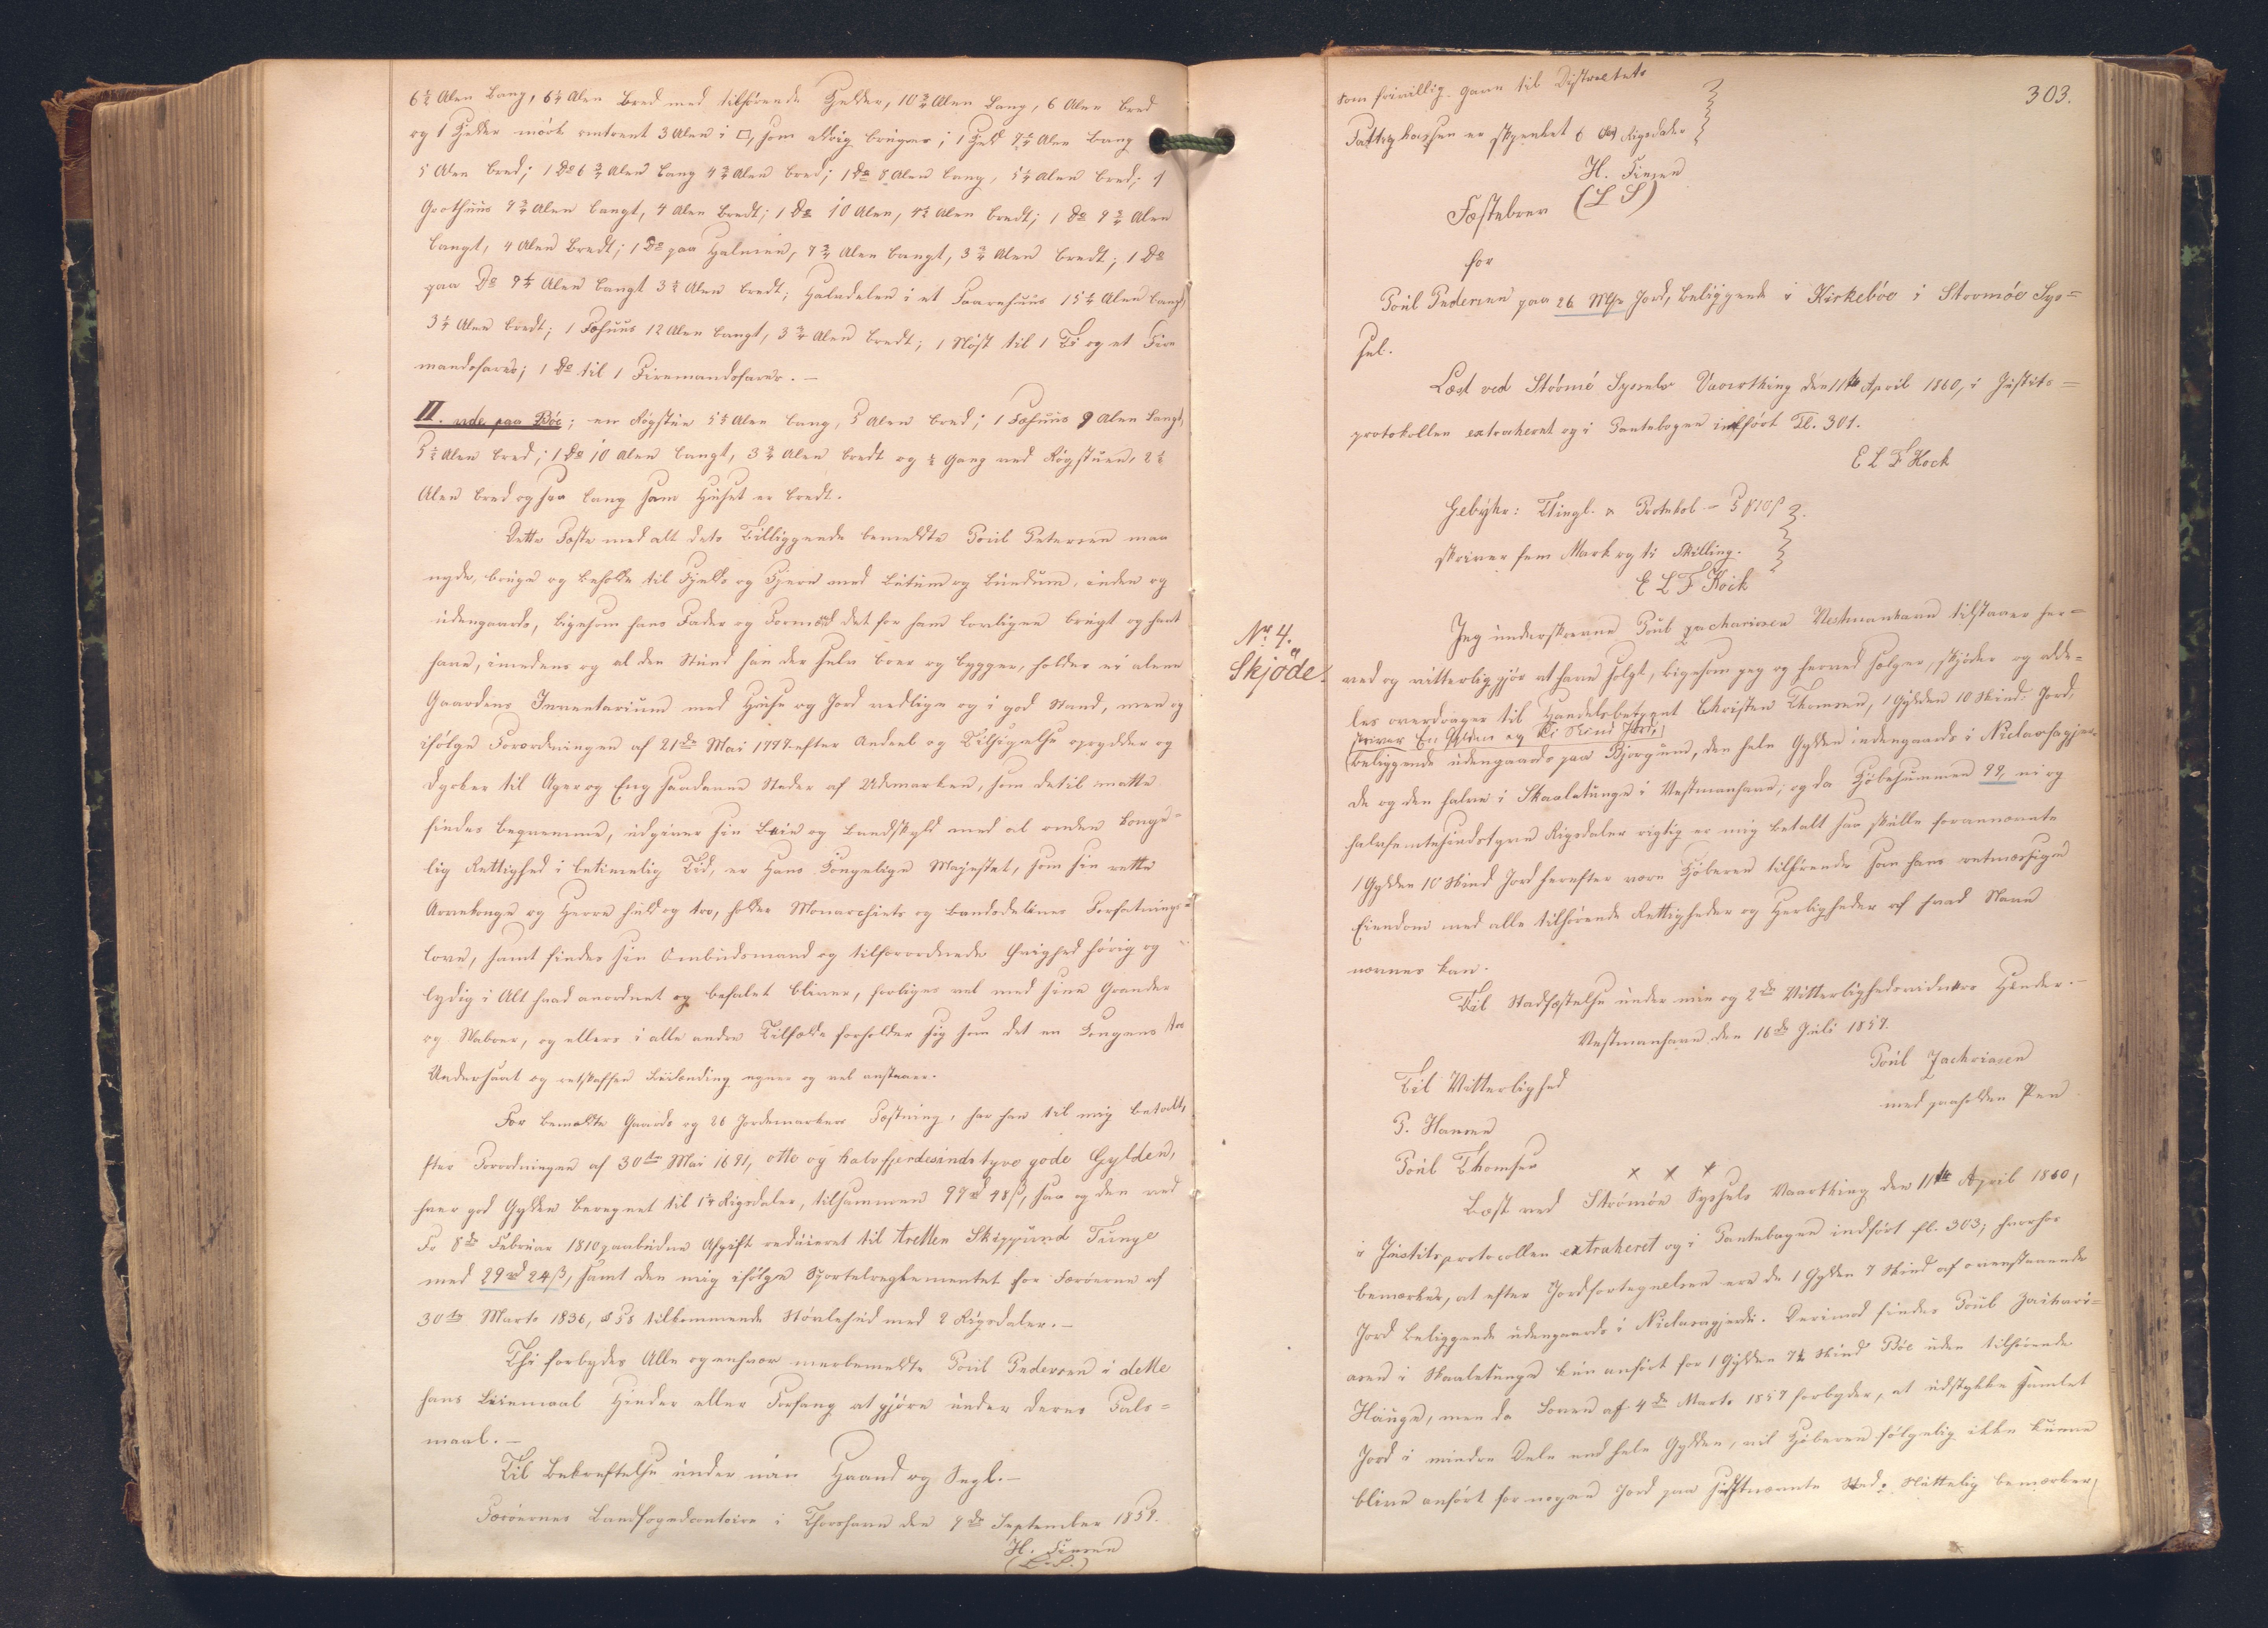 6½ Alen Lang, 6¼ Alen Bred med tilhørende Kjelder, 10¾ Alen Lang, 6 Alen bred
og 1 Kjelder mörk omtrent 3 Alen i □, som aldrig bruges; 1 Hjeld 9¼ Alen Lang
5 Alen bred; 1 Do 6¾ Alen lang 4¾ Alen bred; 1 Do 8 Alen lang, 5¼ Alen bred; 1
Grothuus 9¾ Alen langt, 4 Alen bredt; 1 Do 10 Alen, 4½ Alen bredt; 1 Do 9¾ Alen
langt, 4 Alen bredt; 1 Do paa, 7¾ Alen langt, 3¾ Alen bredt; 1 Do
paa Do 9¼ Alen langt 3½ Alen bredt; Halvdelen i et Faarehuus 15¼ Alen langt
3¼ Alen bredt; 1 Fæhuus 12 Alen langt, 3¾ Alen bredt; 1 Nöst til 1 og et Fire
mandsfarer; 1 Do til 1 Firemandsfarer. -
II. ude paa Böe; en Rögstue 5½ Alen lang, 5 Alen bred; 1 Fæhuus 9 Alen langt,
5½ Alen bred; 1 Do 10 Alen langt, 3¾ Alen bredt og ½ Gang ved Rögstuen, 2½
Alen bred og saa lang som Huset er bredt.
Dette Fæste med alt dets Tilliggende bemeldte Poul Petersen maa
nyde, bruge og beholde til Fjelds og Fjere med Lutum og Lundum, inden og
udengaards, ligesom hans Fader og Formænd det for ham lovligen brugt og havt
have, imedens og al den Stund han der selv boer og bygger, holder ei alene
Gaardens Inventarium med Huse og Jord vedlige og i god Stand, men og
ifölge Forordningen af 21de Mai 1777 efter Andeel og Tilsigelse oprydder og
dyrker til Ager og Eng saadanne Steder af Udmarken, som dertil maatte
findes beqvemme, udgiver sin Leie og Landskyld med al anden Konge-
lig Rettighed i betimelig Tid, er Hans Kongelige Majestet, som sin rette
Arvekonge og Herre huld og tro, holder Monarchiets og Landsdelenes Forfatnings-
love, samt findes sin Ombudsmand og tilforordnede Övrighed hörig og
lydig i Alt hvad anordnet og befalet bliver, forliges vel med sine Grander
og Naboer, og ellers i alle andre Tilfælde forholder sig som det en Kongens tro
Undersaat og retskaffen Leilænding egner og vel anstaaer.
For bemeldte Gaards og 26 Jordemarkers Fæstning, har han til mig betalt,
efter Forordningen af 30te Mai 1691, otte og halvfjerdesindstyve gode Gylden,
hver god Gylden beregnet til 1¼ Rigsdaler, tilsammen 97rd 48ß, saa og den ved
Fr 8de Februar 1810 paabudne Afgift reduceret til tretten Skippund Tunge
med 29rd 24ß, samt den mig ifölge Sportelreglementet for Færöerne af
30te Marts 1836, § 58 tilkommende Stövlehud med 2 Rigsdaler. -
Thi forbydes Alle og enhver merbemeldte Poul Pedersen i dette
hans Leiemaal Hinder eller Forfang at gjöre under deres Fals-
maal. -
Til Bekræftelse under min Haand og Segl. -
Færöernes Landfogedcontoir i Thorshavn den 9de September 1859.
H. Finsen
(L. S.)
303.
Som frivillig Gave til Distriktets
Fattigkassen er skjenket 6 Rigsdaler
H. Finsen
(L S)
Fæstebrev
for
Poul Pedersen paa 26 Mk Jord, beliggende i Kirkeböe i Strömöe Sys-
sel.
Læst ved Strömö Syssels Vaarthing den 11te April 1860, i Justits-
protokollen extraheret og i Pantebogen indfört Fol. 301.
E L F Kock
Gebyhr: Thingl. & Protokol - 5 ₰ 10 ß
skriver fem Mark og ti Skilling.
E L F Kock
Nr. 4.
Skjöde.
Jeg underskrevne Poul Zachariasen Vestmanhavn tilstaaer her-
ved og vitterlig gjör at have solgt, ligesom jeg og herved sælger, skjöder og alde-
les overdrager til Handelsbetjent Christen Thomsen, 1 Gylden 10 Skind Jord,
skriver En Gylden og ti Skind Jord,
beliggende udengaards paa Bjorgum, den hele Gylden indengaards i Niclasagjer-
de og den halve i Skaaletunge i Vestmanhavn; og da Kjöbesummen 99, ni og
halvfemtesindstyve Rigsdaler rigtig er mig betalt saa skulle forannævnte
1 Gylden 10 Skind Jord herefter være Kjöberen tilhörende som hans retmæssige
Eiendom med alle tilhörende Rettigheder og Herligheder af hvad Navn
nævnes kan.
Til Stadfæstelse under min og 2de Vitterlighedsvidners Hænder. -
Vestmanhavn, den 16de Juli 1857.
Poul Zachriasen
med paaholden Pen
Til Vitterlighed
P. Hansen
Poul Thomsen
x x x
Læst ved Strömöe Syssels Vaarthing den 11te April 1860,
i Justitsprotocollen extraheret og i Pantebogen indfört fl. 303; hvorhos
bemærkes, at efter Jordfortegnelsen ere de 1 Gylden 7 Skind af ovenstaaende
Jord beliggende udengaards i Niclasagjerde. Derimod findes Poul Zachari-
asen i Skaaletunge kun anfört for 1 Gylden 7½ Skind Böe uden tilhörende
Hauge, men da Loven af 4de Marts 1857 forbyder, at udstykke samlet
Jord i mindre Dele end hele Gylden, vil Kjöberen fölgelig ikke kunne
blive anfört for nogen Jord paa sidstnævnte Sted. Sluttelig bemærkes,